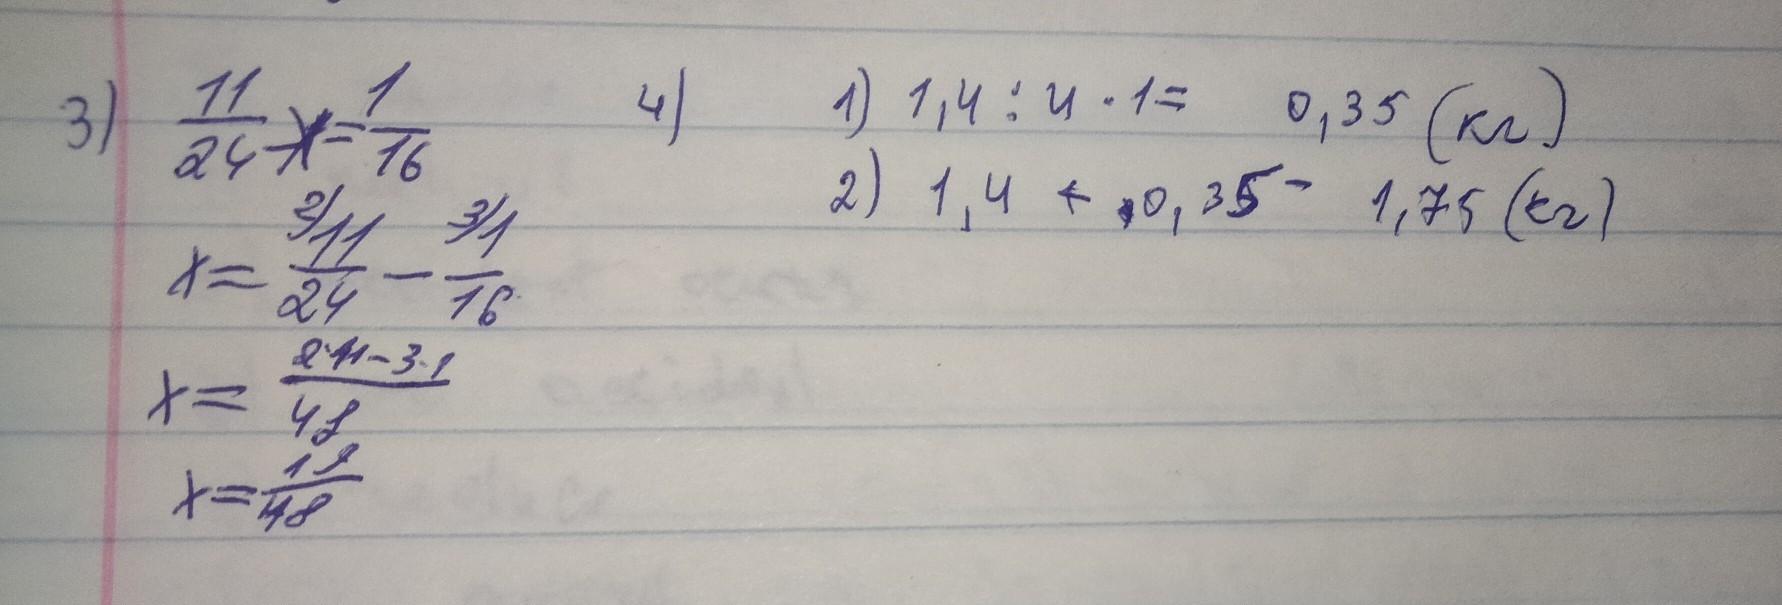 3) 11/24 - x = 1/16
x = 2/11/24 - 3/1/16
x = 2·11-3·1/48
x = 19/48
4) 1) 1,4 : 4 · 1 = 0,35 (кг)
2) 1,4 + 0,35 - 1,75 (кг)